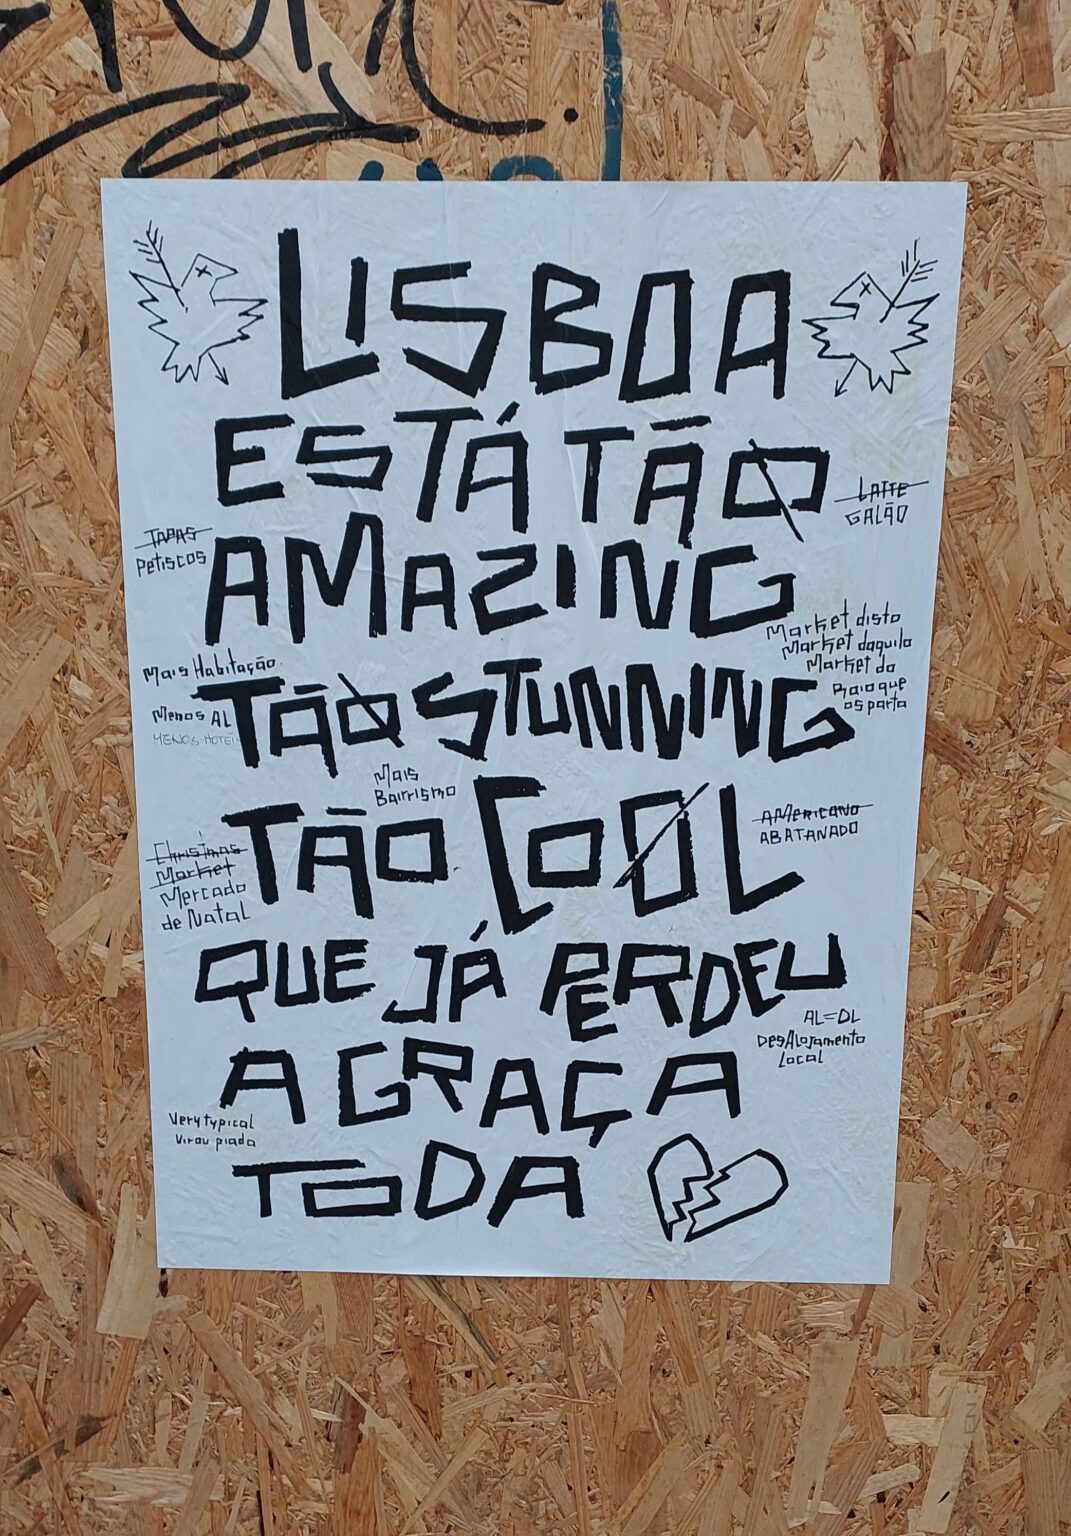 LISBOA
ESTÁ TÃO
LATTE
GALÃO
TAPAS
Petiscos
AMAZING
Market disto
Market daquilo
Market do
Raio que
os parta
Mais Habitação
Menos AL
MENOS HOTÉIS
TÃO STUNNING
Mais
Bairrismo
TÃO COOL
AMERICANO
ABATANADO
Christmas
Market
Mercado
de Natal
QUE JÁ PERDEU
AL=DL
DesAlojamento
Local
A GRAÇA
Very typical
virou piada
TODA